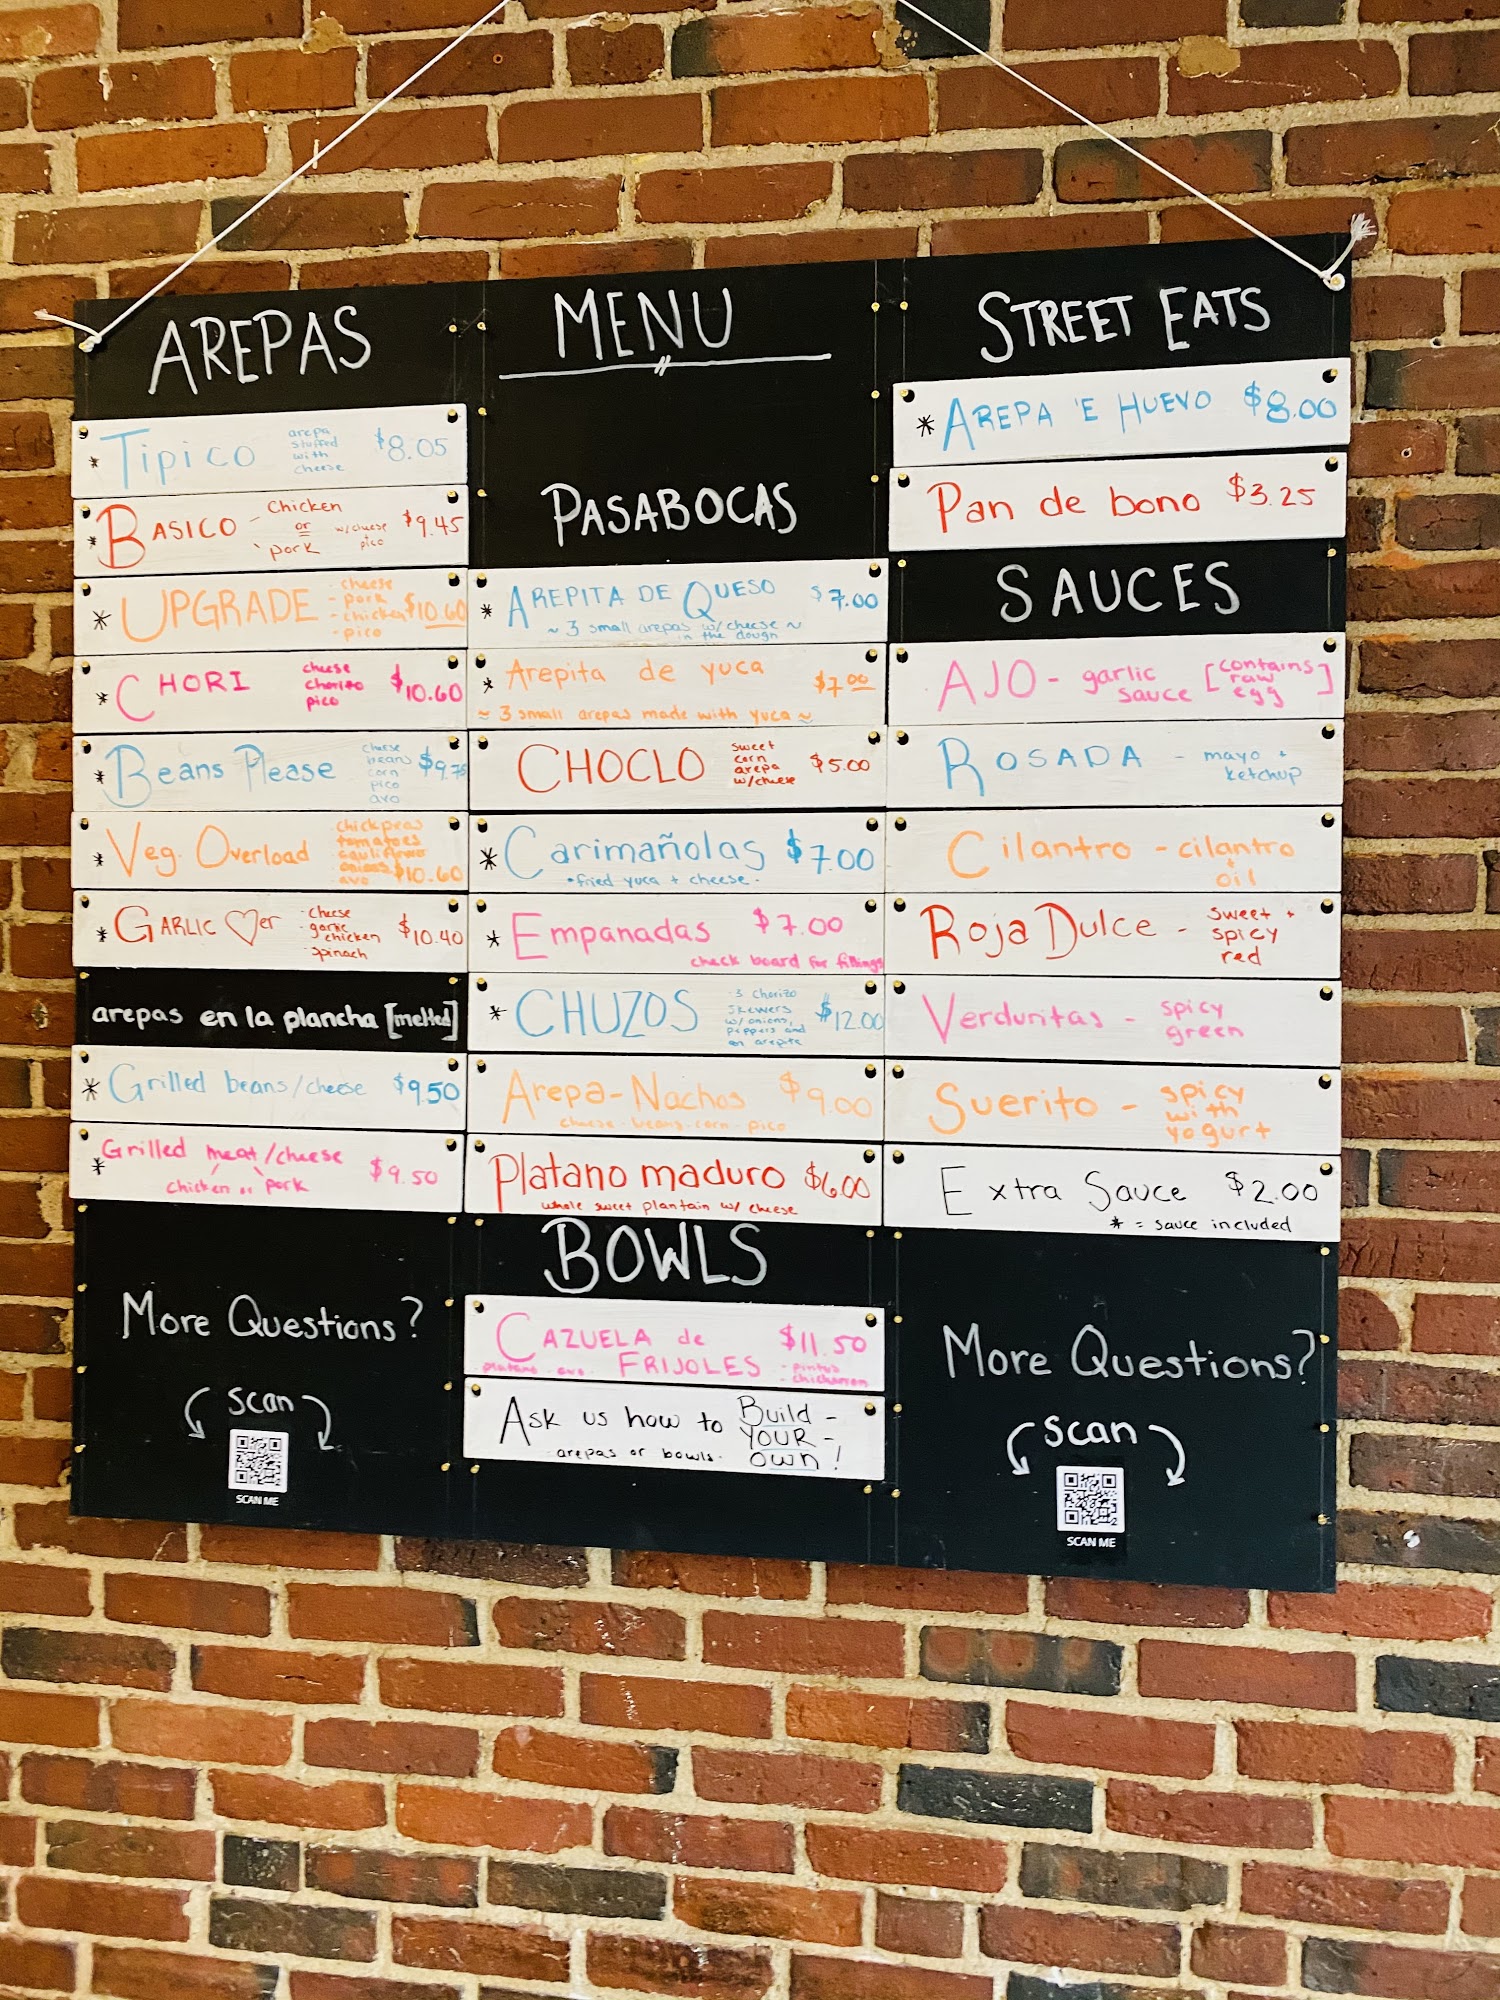 AREPAS
* Tipico arepa stuffed with cheese $8.05
* BASICO - Chicken or pork w/cheese + pico $9.45
* UPGRADE - cheese - pork - chicken - pico $10.60
* CHORI cheese chorizo pico $10.60
* Beans Please cheese beans corn pico avo $9.75
* Veg. Overload chickpeas tomatoes cauliflower onions avo $10.60
* GARLIC ♡er - cheese - garlic chicken - spinach $10.40
arepas en la plancha [melted]
* Grilled beans/cheese $9.50
* Grilled meat/cheese chicken or pork $9.50
More Questions?
scan
SCAN ME
MENU
PASABOCAS
* AREPITA DE QUESO $7.00
~ 3 small arepas w/cheese ~
in the dough
* Arepita de yuca $7.00
~ 3 small arepas made with yuca ~
CHOCLO sweet corn arepa w/cheese $5.00
* Carimañolas $7.00
·fried yuca + cheese·
* Empanadas $7.00
check board for fillings
* CHUZOS 3 Chorizo skewers w/onions, peppers and an arepita $12.00
Arepa-Nachos $9.00
cheese·beans·corn·pico
Platano maduro $6.00
whole sweet plantain w/ cheese
BOWLS
CAZUELA de FRIJOLES $11.50
platano · avo · - pintos - chicharron
Ask us how to Build - YOUR - own!
arepas or bowls.
STREET EATS
* AREPA 'E HUEVO $8.00
Pan de bono $3.25
SAUCES
AJO - garlic sauce [contains raw egg]
ROSADA - mayo + ketchup
Cilantro - cilantro + oil
Roja Dulce - sweet + spicy red
Verduritas - spicy green
Suerito - spicy with yogurt
Extra Sauce $2.00
* = sauce included
More Questions?
scan
SCAN ME